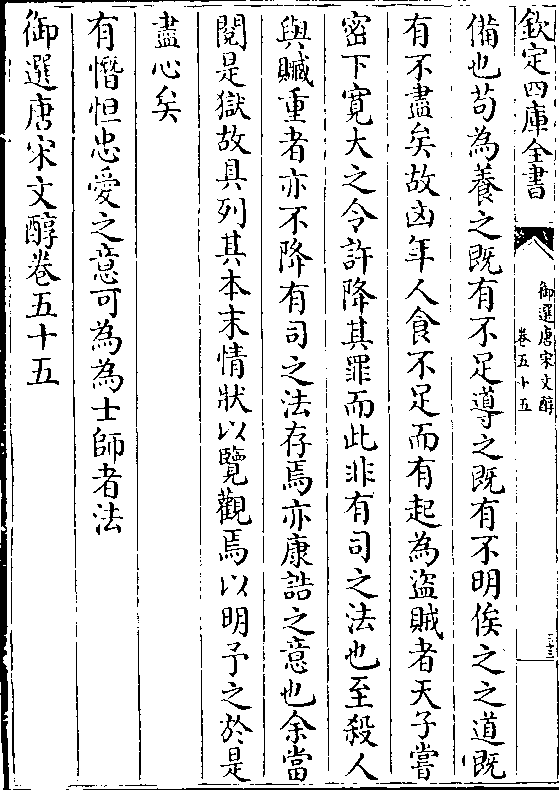 欽定四庫全書
御選唐宋文醇
卷五十五
三十三
備也苟為養之既有不足導之既有不明俟之之道既
有不盡矣故凶年人食不足而有起為盜賊者天子嘗
密下寬大之令許降其罪而此非有司之法也至殺人
與贓重者亦不降有司之法存焉亦康誥之意也余當
閱是獄故具列其本末情狀以覽觀焉以明予之於是
盡心矣
有憯怛忠愛之意可為為士師者法
御選唐宋文醇卷五十五